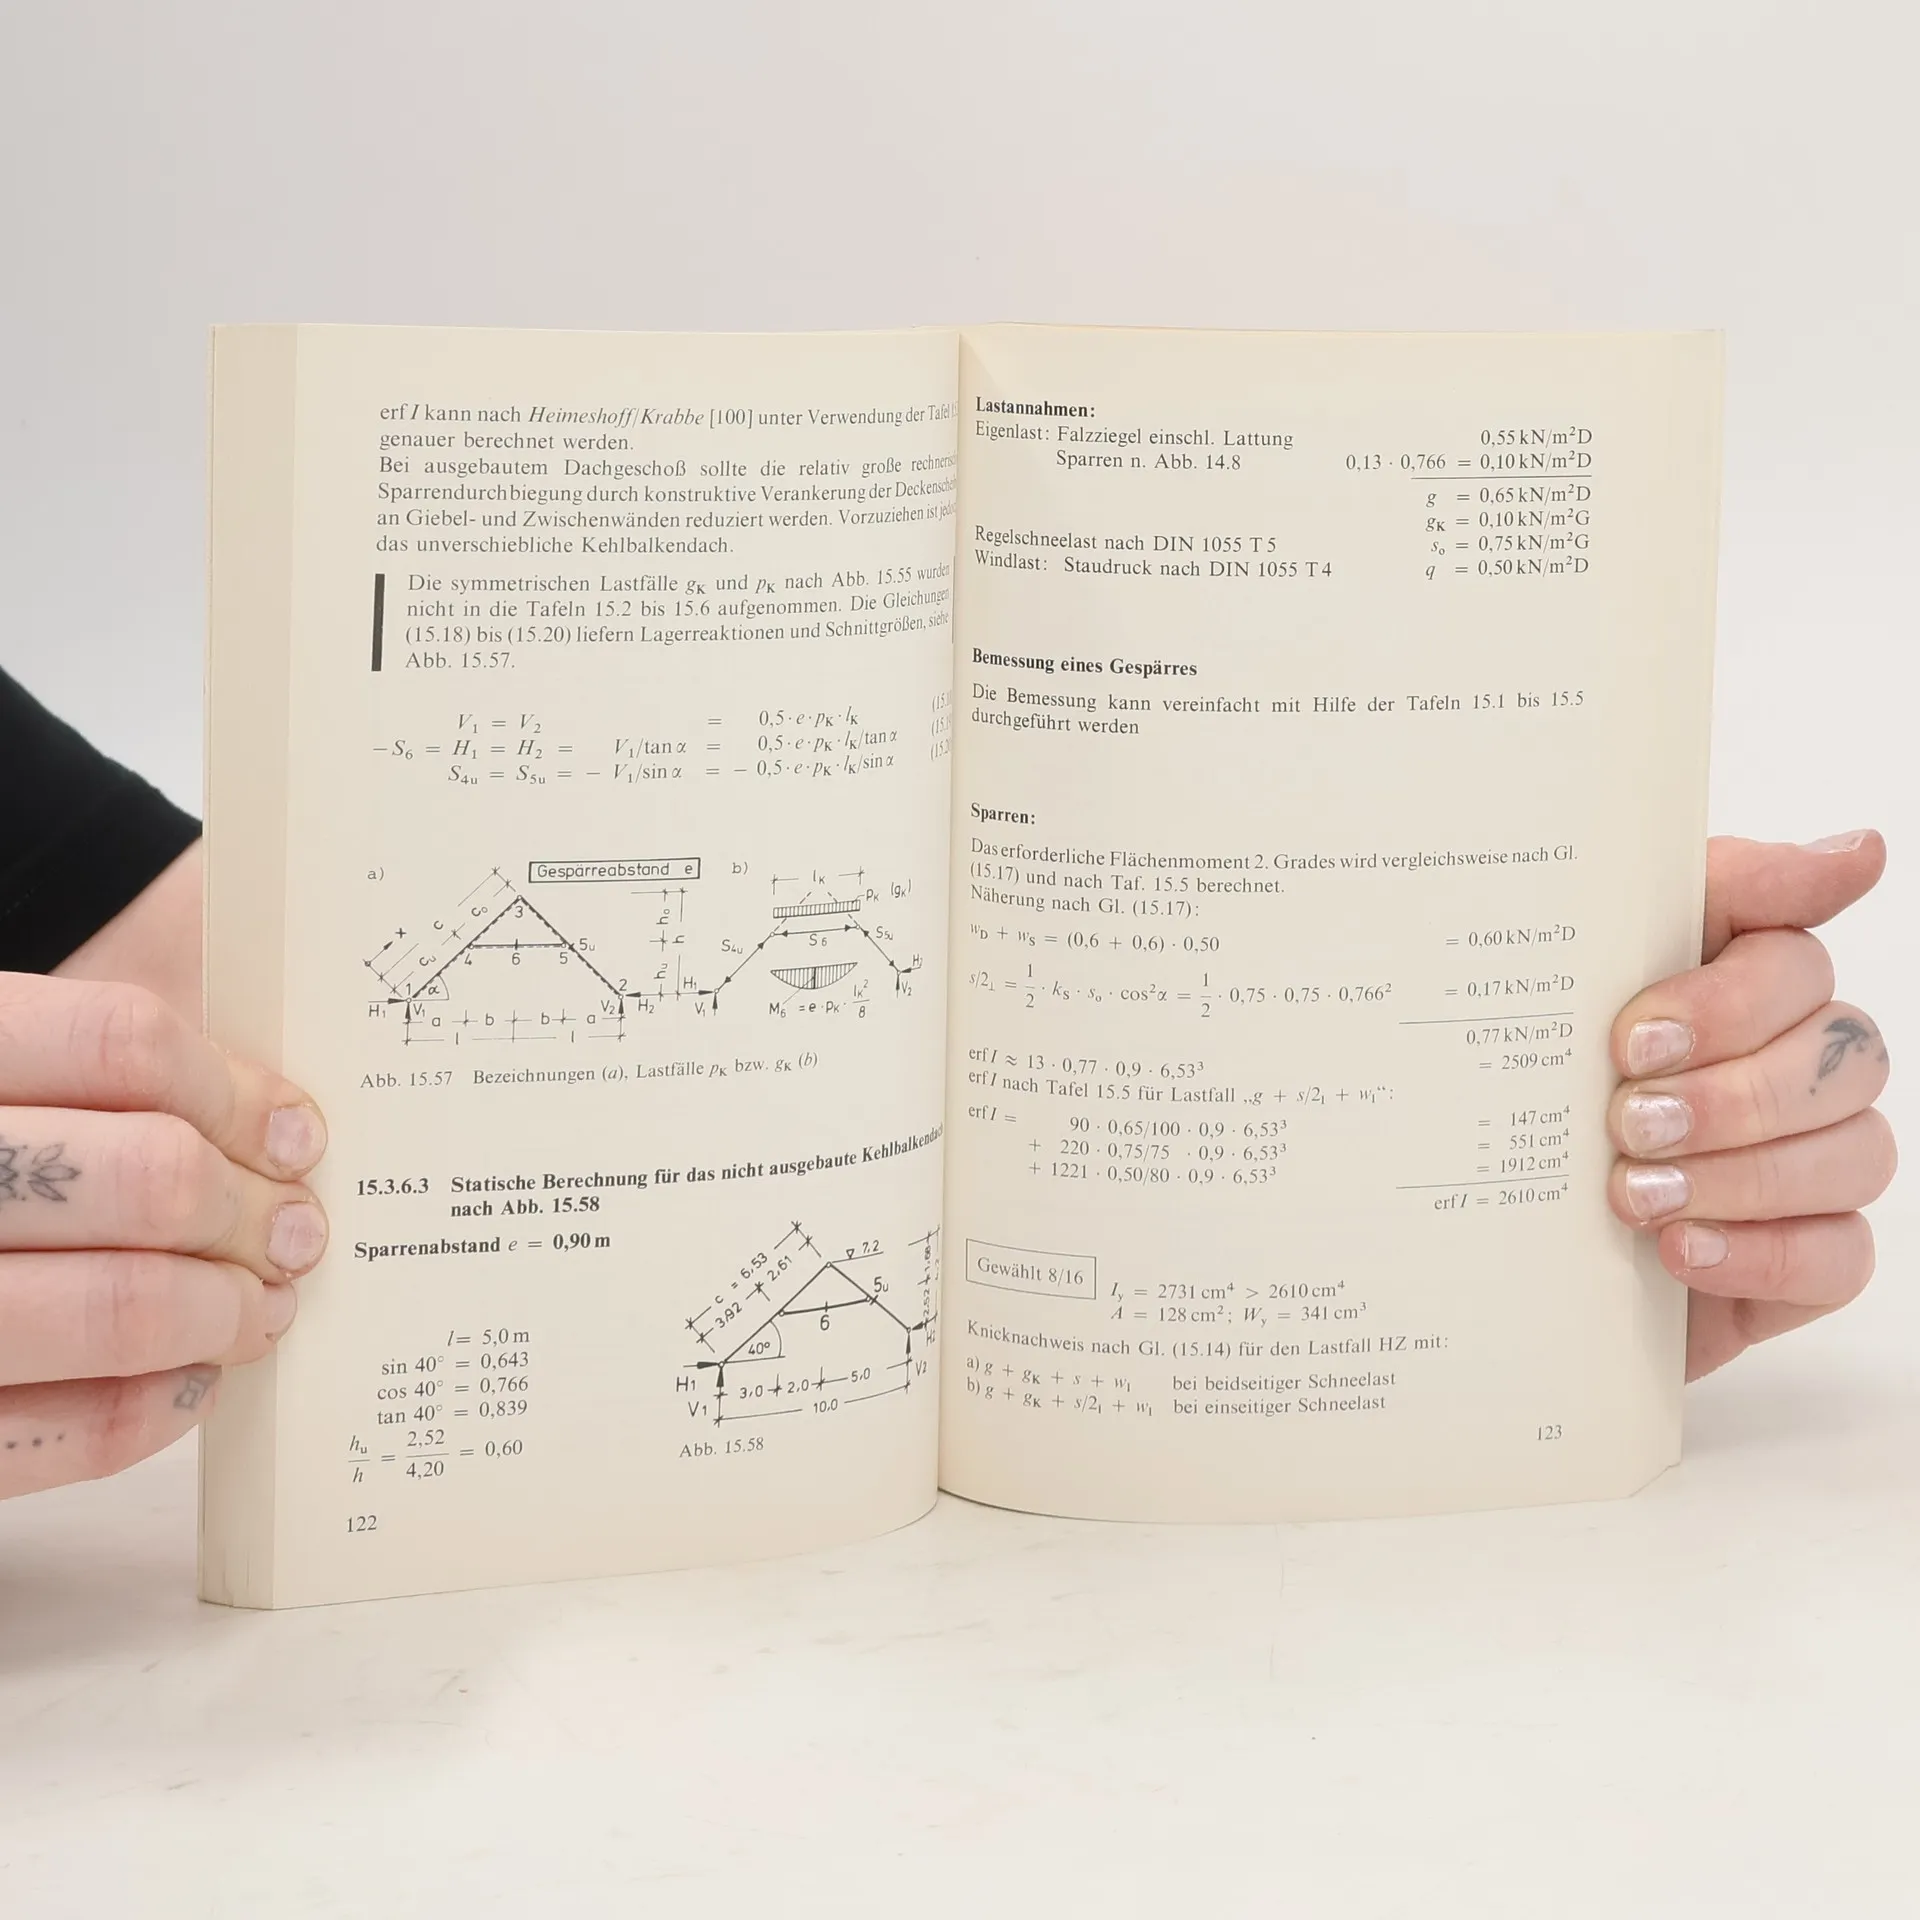 erf I kann nach Heimeshoff/Krabbe [100] unter Verwendung der Tafel
genauer berechnet werden.
Bei ausgebautem Dachgeschoß sollte die relativ große
Sparrendurchbiegung durch konstruktive Verankerung der
an Giebel- und Zwischenwänden reduziert werden. Vorzuziehen ist
das unverschiebliche Kehlbalkendach.
Die symmetrischen Lastfälle gK und pK nach Abb. 15.55 wurden
nicht in die Tafeln 15.2 bis 15.6 aufgenommen. Die Gleichungen
(15.18) bis (15.20) liefern Lagerreaktionen und Schnittgrößen, siehe
Abb. 15.57.
V₁ = V₂ = 0,5 · e · pK · lK
− S₆ = H₁ = H₂ = V₁/tan α = 0,5 · e · pK · lK/tan α
S₄ᵤ = S₅ᵤ = − V₁/sin α = − 0,5 · e · pK · lK/sin α
a) Gespärreabstand e b)
c cₒ cᵤ + 3 4 6 5 5u 1 α 2
H₁ V₁ V₂ H₂ a b b a l l
hₒ h hᵤ
lK pK (gK)
S₄ᵤ S₆ S₅ᵤ
H₁ V₁ H₂ V₂
M₆ = e · pK · lK²/8
Abb. 15.57 Bezeichnungen (a), Lastfälle pK bzw. gK (b)
15.3.6.3 Statische Berechnung für das nicht ausgebaute Kehlbalkendach
nach Abb. 15.58
Sparrenabstand e = 0,90 m
l = 5,0 m
sin 40° = 0,643
cos 40° = 0,766
tan 40° = 0,839
hᵤ/h = 2,52/4,20 = 0,60
c = 6,53
3,92 2,61
▽ 7.2
5u
6
40°
H1
V1
V2
3,0 2,0 5,0
10,0
2,52 1,68
Abb. 15.58
122
Lastannahmen:
Eigenlast: Falzziegel einschl. Lattung 0,55 kN/m²D
Sparren n. Abb. 14.8 0,13 · 0,766 = 0,10 kN/m²D
g = 0,65 kN/m²D
gK = 0,10 kN/m²G
Regelschneelast nach DIN 1055 T 5 sₒ = 0,75 kN/m²G
Windlast: Staudruck nach DIN 1055 T 4 q = 0,50 kN/m²D
Bemessung eines Gespärres
Die Bemessung kann vereinfacht mit Hilfe der Tafeln 15.1 bis 15.5
durchgeführt werden
Sparren:
Das erforderliche Flächenmoment 2. Grades wird vergleichsweise nach Gl.
(15.17) und nach Taf. 15.5 berechnet.
Näherung nach Gl. (15.17):
wD + wS = (0,6 + 0,6) · 0,50 = 0,60 kN/m²D
s/2⊥ = 1/2 · kS · sₒ · cos²α = 1/2 · 0,75 · 0,75 · 0,766² = 0,17 kN/m²D
0,77 kN/m²D
erf I ≈ 13 · 0,77 · 0,9 · 6,53³ = 2509 cm⁴
erf I nach Tafel 15.5 für Lastfall „g + s/2ₗ + wₗ“:
erf I = 90 · 0,65/100 · 0,9 · 6,53³ = 147 cm⁴
+ 220 · 0,75/75 · 0,9 · 6,53³ = 551 cm⁴
+ 1221 · 0,50/80 · 0,9 · 6,53³ = 1912 cm⁴
erf I = 2610 cm⁴
Gewählt 8/16
Iy = 2731 cm⁴ > 2610 cm⁴
A = 128 cm²; Wy = 341 cm³
Knicknachweis nach Gl. (15.14) für den Lastfall HZ mit:
a) g + gK + s + wₗ bei beidseitiger Schneelast
b) g + gK + s/2ₗ + wₗ bei einseitiger Schneelast
123